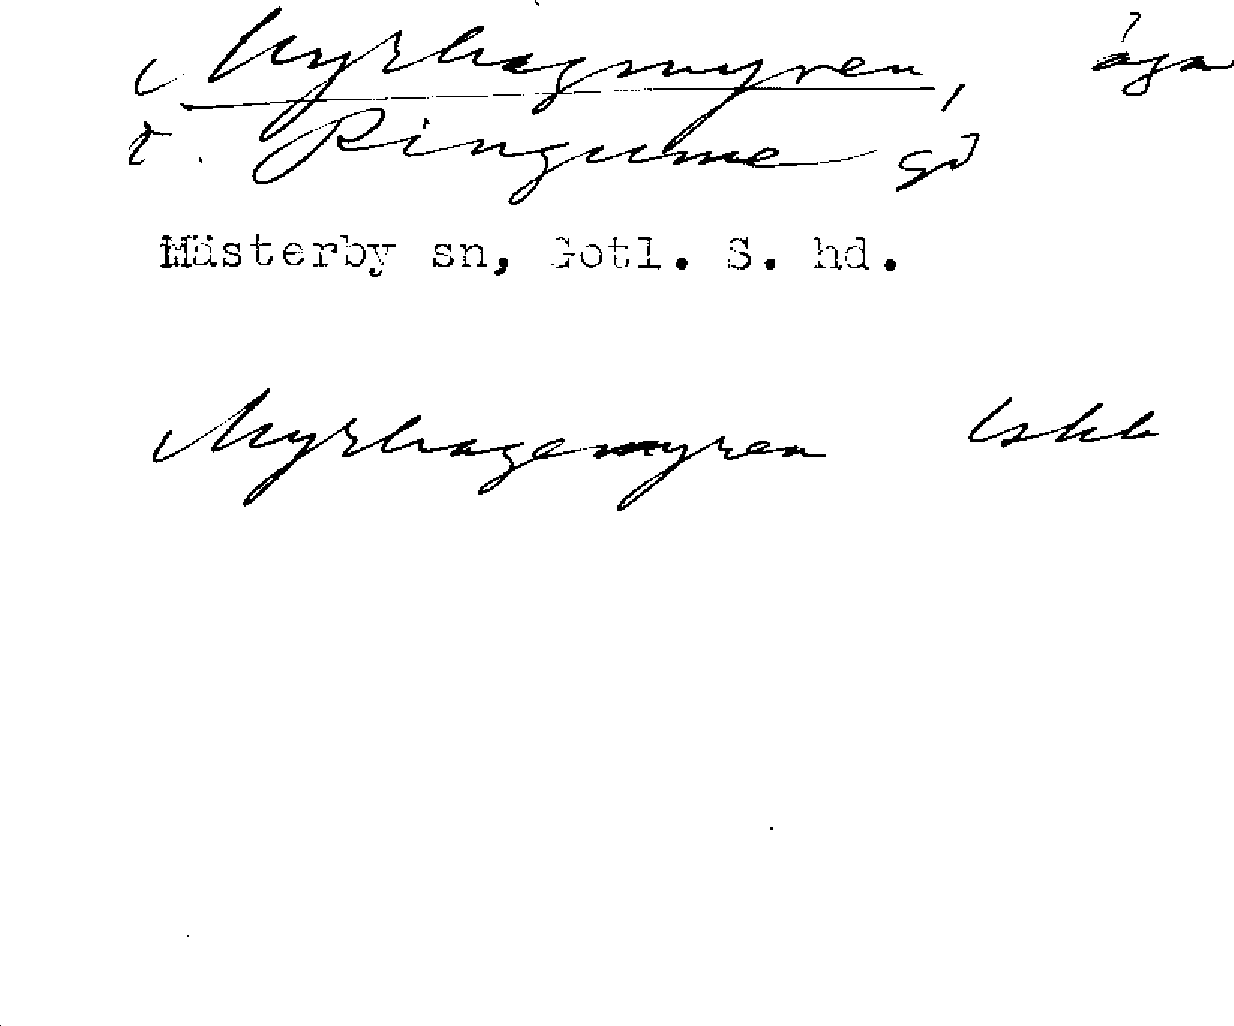 Myrhagmyren, äga
t. Ringume gd
Mästerby sn, Gotl. S. hd.
Myrhagemyren lskb